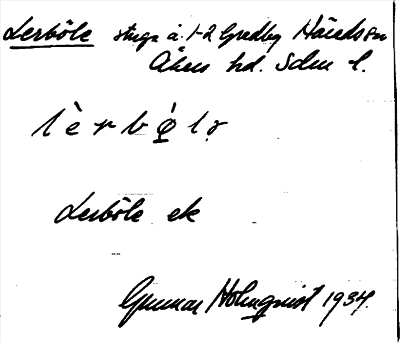 Lerböle stuga å 1-2 Gredby Härads sn
Åkers hd. Sdm l.
lèrbǿlą
Lerböle ek
Gunnar Holmqvist 1934.